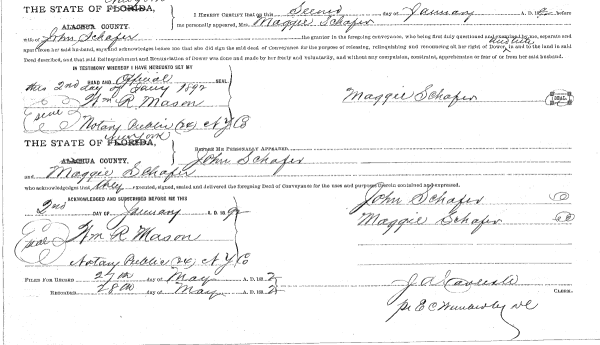 THE STATE OF FLORIDA,
ALACHUA COUNTY.
I HEREBY CERTIFY that on this Second day of January A. D. 1892 before
me personally appeared, Mrs. Maggie Schafer
wife of John Schafer the grantor in the foregoing conveyance, who being first duly questioned and examined by me, separate and
apart from her said husband, says and acknowledges that she did sign the said deed, of Conveyance for the purpose of releasing, relinquishing and renouncing all her right of Dower in and to the land in said
Deed described, and that said Relinquishment and Renunciation of Dower was done and made by her freely and voluntarily, and without any compulsion, constraint, apprehension or fear of or from her said husband.
IN TESTIMONY WHEREOF I HAVE HEREUNTO SET MY
HAND AND Official SEAL
this 2nd day of Jany 1892
Wm R. Mason
Maggie Schafer SEAL
seal
Notary Public (24) N Y Co
New York
THE STATE OF FLORIDA,
ALACHUA COUNTY.
BEFORE ME PERSONALLY APPEARED John Schafer
and Maggie Schafer
who acknowledges that they executed, signed, sealed and delivered the foregoing Deed of Conveyance for the uses and purposes therein contained and expressed.
ACKNOWLEDGED AND SUBSCRIBED BEFORE ME THIS
John Schafer
2nd DAY OF January A. D. 1892
Maggie Schafer
seal
Wm R Mason
Notary Public (24) N Y Co
FILED FOR RECORD 27th day of May A. D. 1892
RECORDED 28th day of May A. D. 1892
CLERK.
pr E C Wimberly DC